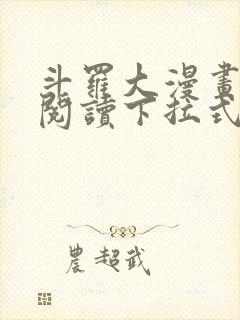 斗羅大漫畫
閱讀下拉式
農超武